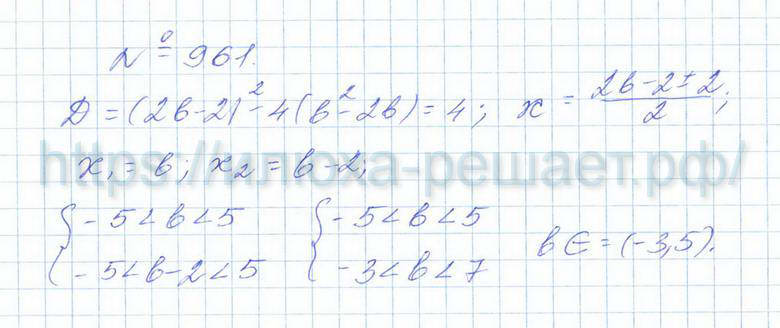 № 961.
D = (2b-2)² - 4(b² - 2b) = 4; x = (2b-2±2)/2;
x₁ = b; x₂ = b-2;
https://илюха-решает.рф/
{ -5<b<5 { -5<b<5
{ -5<b-2<5 { -3<b<7 b ∈ = (-3,5).